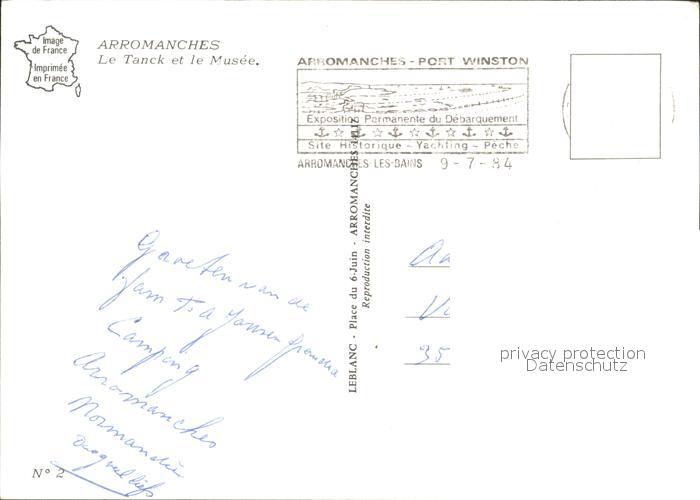 Image
de France
Imprimée
en France
ARROMANCHES
Le Tanck et le Musée.
ARROMANCHES - PORT WINSTON
Exposition Permanente du Débarquement
Site Historique - Yachting - Pêche
ARROMANCHES-LES-BAINS 9 - 7 - 84
LEBLANC - Place du 6-Juin - ARROMANCHES
Reproduction interdite
Groeten van de
fam T. d Jansen
Camping
Arromanches
Normandië
35
privacy protection
Datenschutz
N° 2